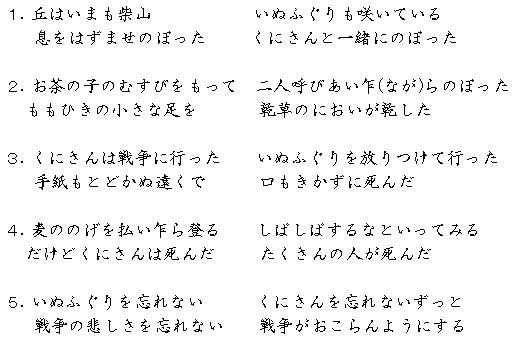 1. 丘はいまも柴山　いぬふぐりも咲いている
息をはずませのぼった　くにさんと一緒にのぼった
2. お茶の子のむすびをもって　二人呼びあい乍(なが)らのぼった
ももひきの小さな足を　乾草のにおいが乾した
3. くにさんは戦争に行った　いぬふぐりを放りつけて行った
手紙もとどかぬ遠くで　口もきかずに死んだ
4. 麦ののげを払い乍ら登る　しばしばするなといってみる
だけどくにさんは死んだ　たくさんの人が死んだ
5. いぬふぐりを忘れない　くにさんを忘れないずっと
戦争の悲しさを忘れない　戦争がおこらんようにする